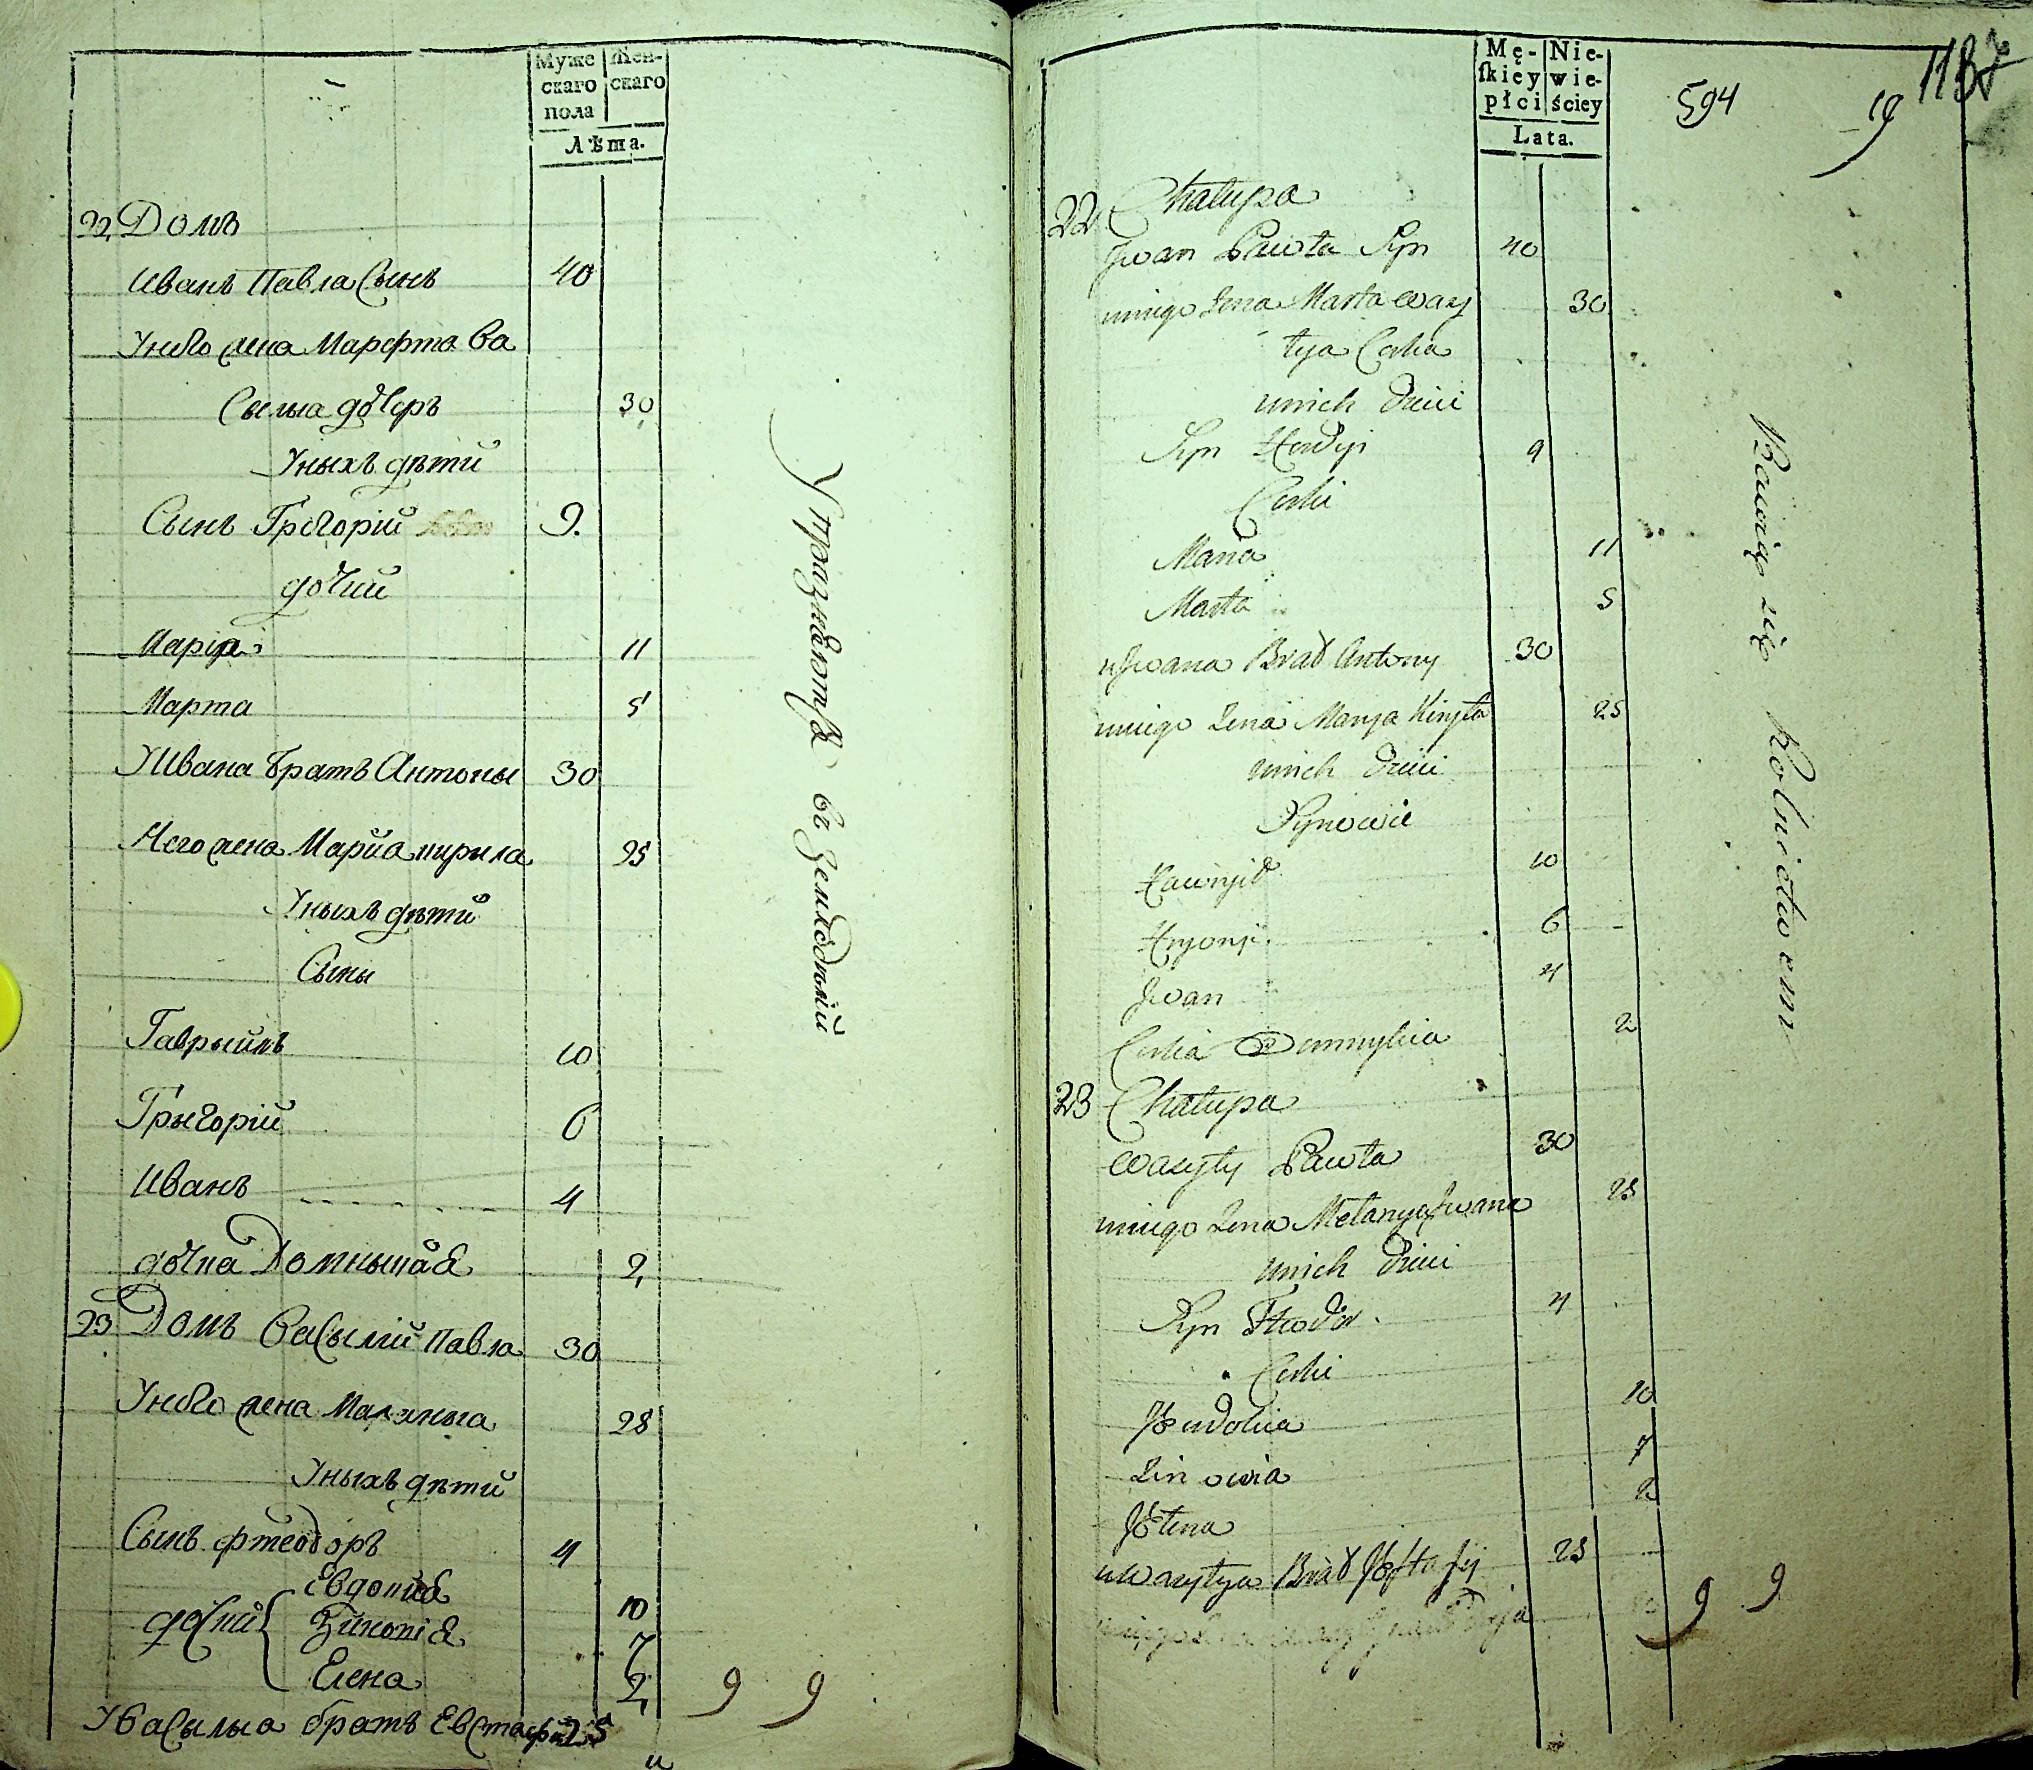 Муже
скаго
пола
Жен-
скаго
Лѣта.
22 Домъ
Иванъ Павла Сынъ 40
Унего жена Марфта Ва
Сылья дочеръ 30
Уныхъ дѣти
Сынъ Грегорій 9.
дочки
Марія 11
Марта 5
УИвана братъ Антоны 30
Него жена Марйа кирыла 25
Уныхъ дѣти
Сыны
Гаврыйлъ 10
Грыгорій 6
Иванъ 4
дочка Домныкіа 2
23 Домъ Васылій Павла 30
Унего жена Маланыа 28
Уныхъ дѣти
Сынъ фтеодоръ 4
Евдокиа 10
дочки Зиновіа 7
Елена 2
УВасылыа братъ Евстафи 25
и
9 9
Упражняютъся въ Земледѣлій
Mę-
ſkiey
płci
Nie-
wie-
ściey
Lata.
594
19
22 Chałupa
Jwan Pawła Syn 40
uniego Zona Marta Wasy 30
lya Corka
unich dzieci
Syn Hordyi 9
Corki
Maria 11
Marta 5
uJwana Brat Antony 30
uniego Zona Marya Kiryła 25
unich dzieci
Synowie
Hawryił 10
Hryory. 6
Jwan 4
Corka Domnykia 2
23 Chałupa
Wasyly Pawła 30
uniego Zona Melanya Jwana 28
unich dzieci
Syn Fteodor. 4
Corki
Jewdokia 10
Zinowia 7
Jelena 2
uWasylya Brat Jewſtafij 25
9 9
Bawią się Rolnictwem